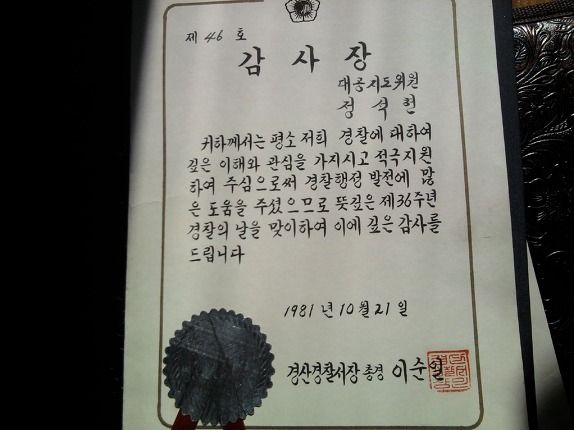 제 46 호
감 사 장
대공지도위원
정 석 현
귀하께서는 평소 저희 경찰에 대하여
깊은 이해와 관심을 가지시고 적극지원
하여 주심으로써 경찰행정 발전에 많
은 도움을 주셨으므로 뜻깊은 제36주년
경찰의 날을 맞이하여 이에 깊은 감사를
드립니다
1981 년 10 월 21 일
경산경찰서장 총경 이순